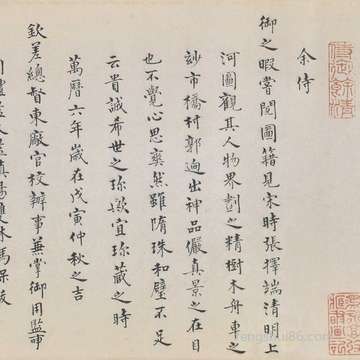 余侍
御之暇嘗閱圖籍見宋時張擇端清明上
河圖觀其人物界劃之精樹木舟車之
妙市橋村郭迥出神品儼真景之在目
也不覺心思爽然雖隋珠和璧不足
云貴誠希世之珍歟宜珍藏之時
萬曆六年歲在戊寅仲秋之吉
欽差總督東廠官校辦事兼掌御用監事